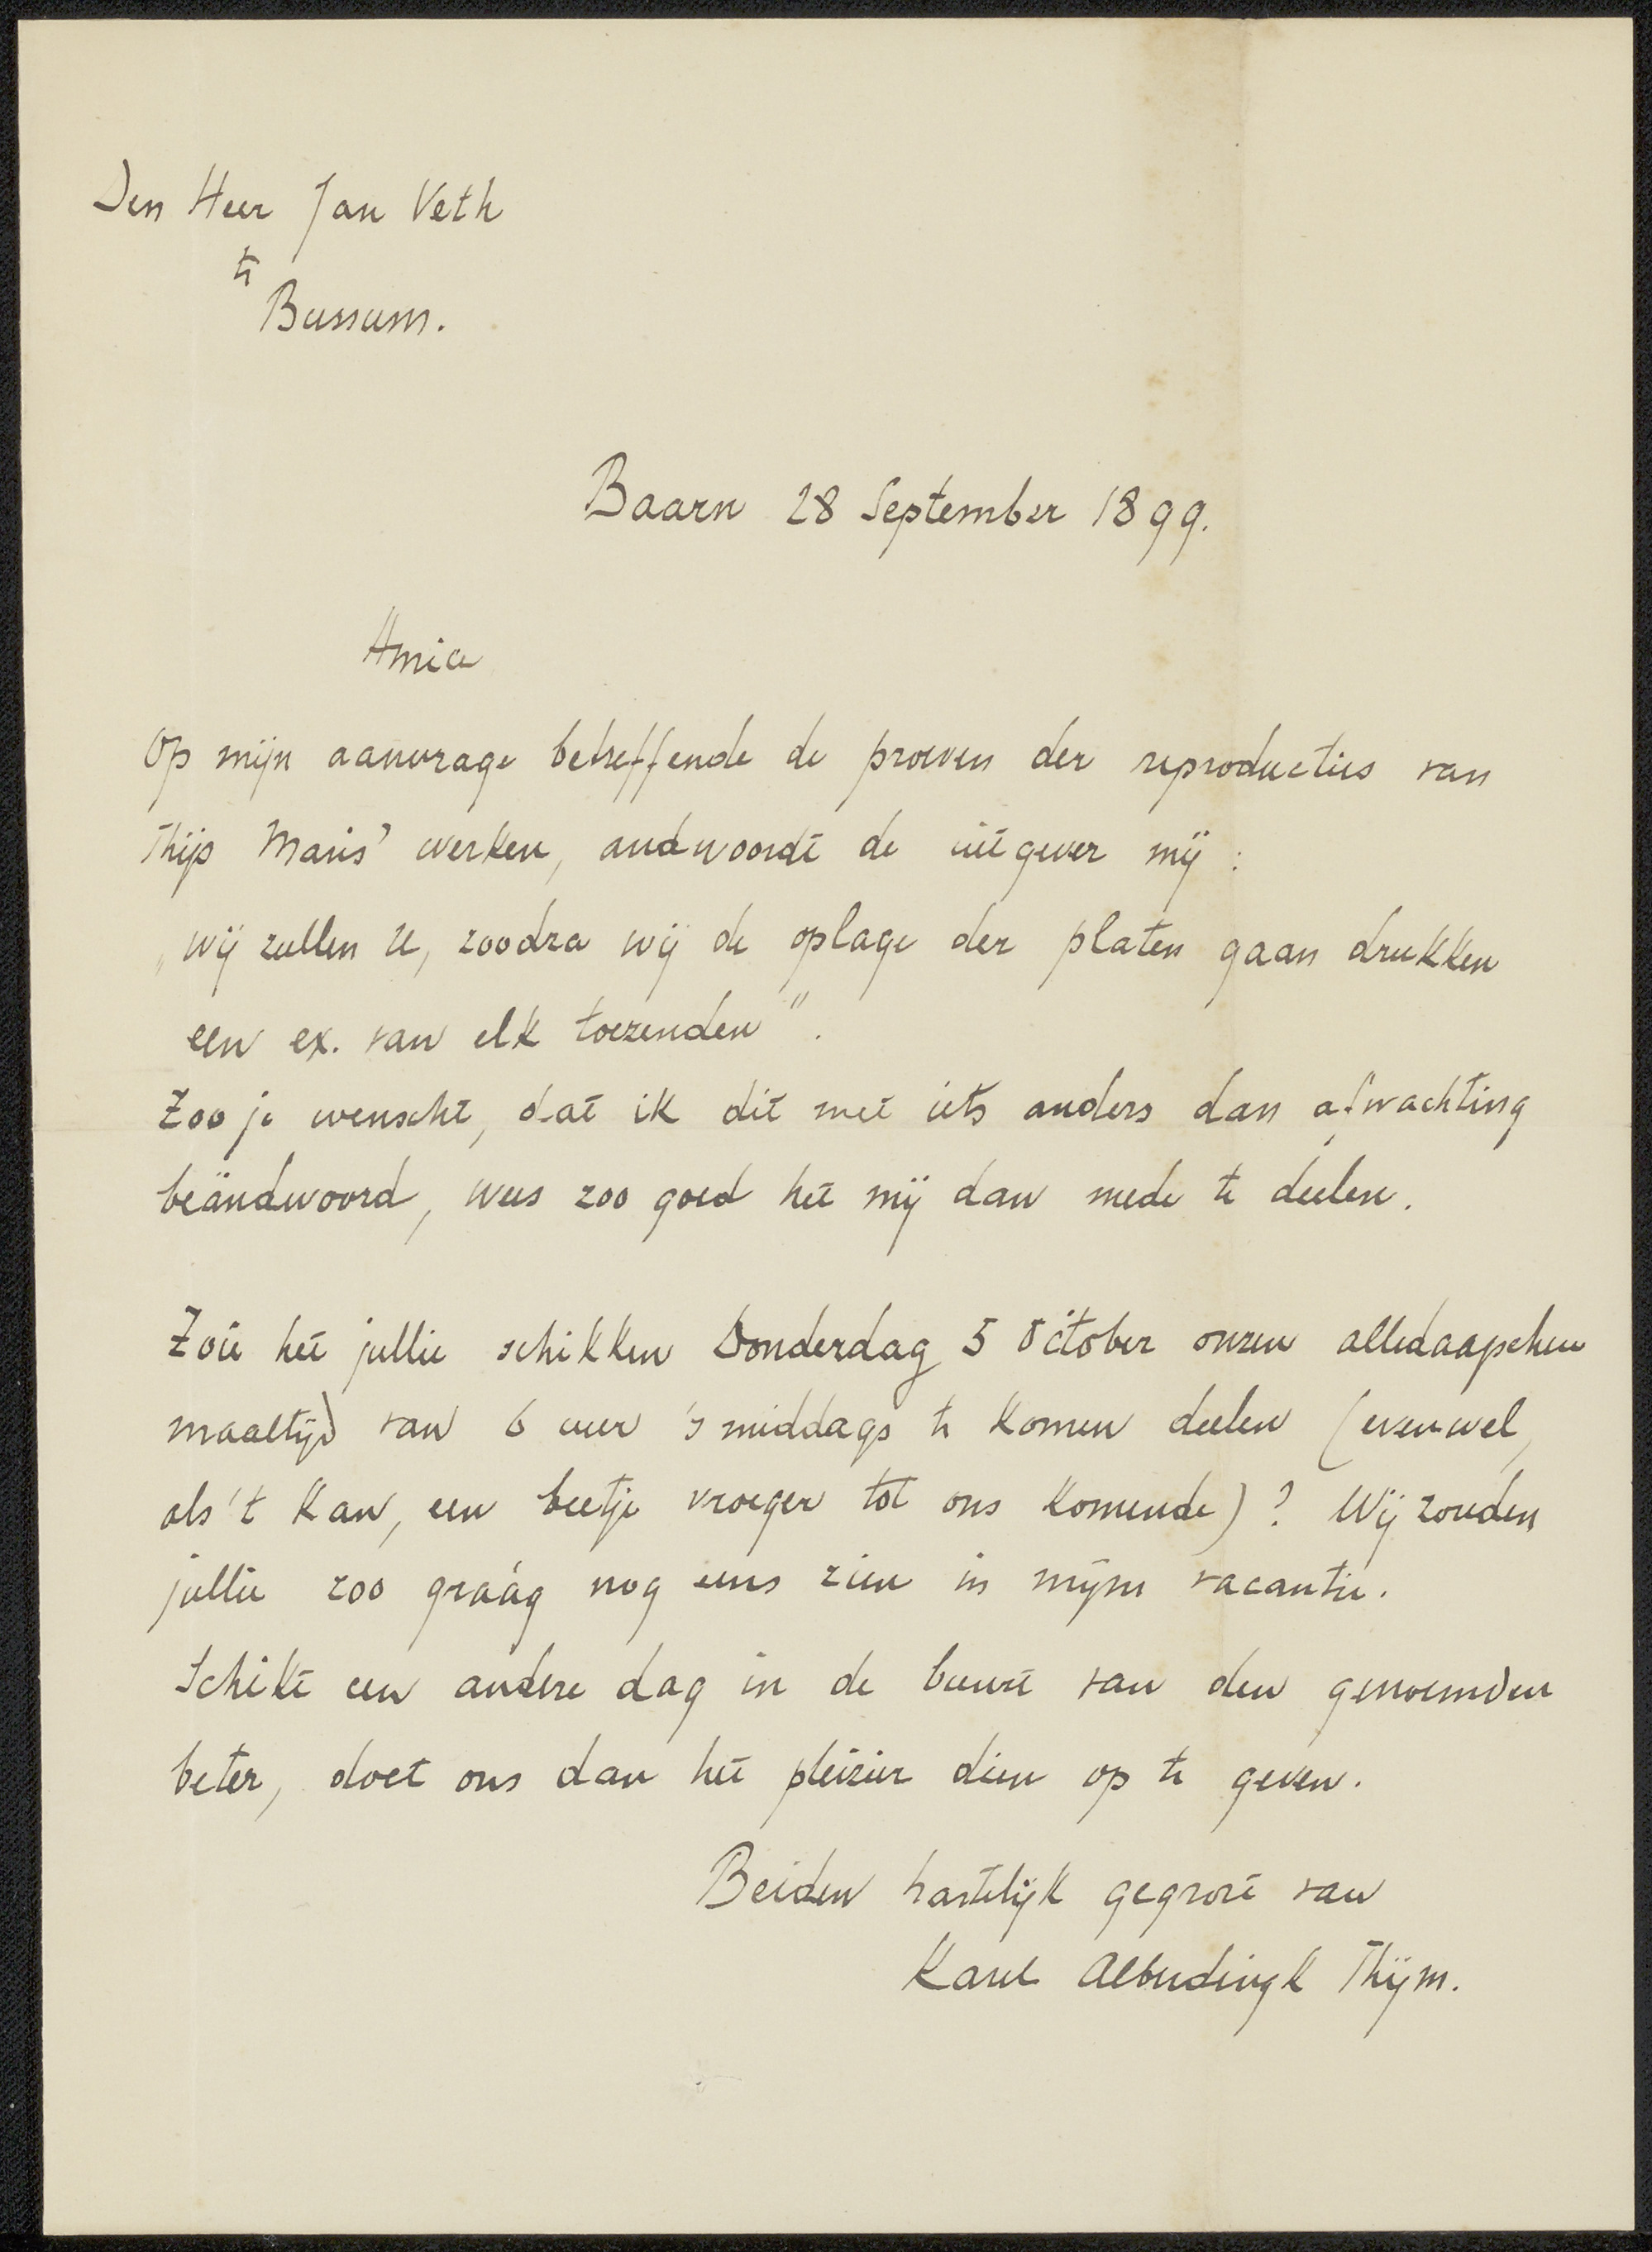 Den Heer Jan Veth
te
Bussum.
Baarn 28 September 1899.
Amice
Op mijn aanvrage betreffende de proeven der reproducties van
Thijs Maris' werken, andwoordt de uitgever mij :
„wij zullen U, zoodra wij de oplage der platen gaan drukken
een ex. van elk toezenden".
Zoo je wenscht, dat ik dit met iets anders dan afwachting
beändwoord, wees zoo goed het mij dan mede te deelen.
Zoû het jullie schikken Donderdag 5 October onzen alledaagschen
maaltijd van 6 uur 's middags te komen deelen (evenwel,
als 't kan, een beetje vroeger tot ons komende)? Wij zouden
jullie zoo graág nog eens zien in mijne vacantie.
Schikt een andere dag in de buurt van den genoemden
beter, doet ons dan het pleizier dien op te geven.
Beiden hartelijk gegroet van
Karel Alberdingk Thijm.